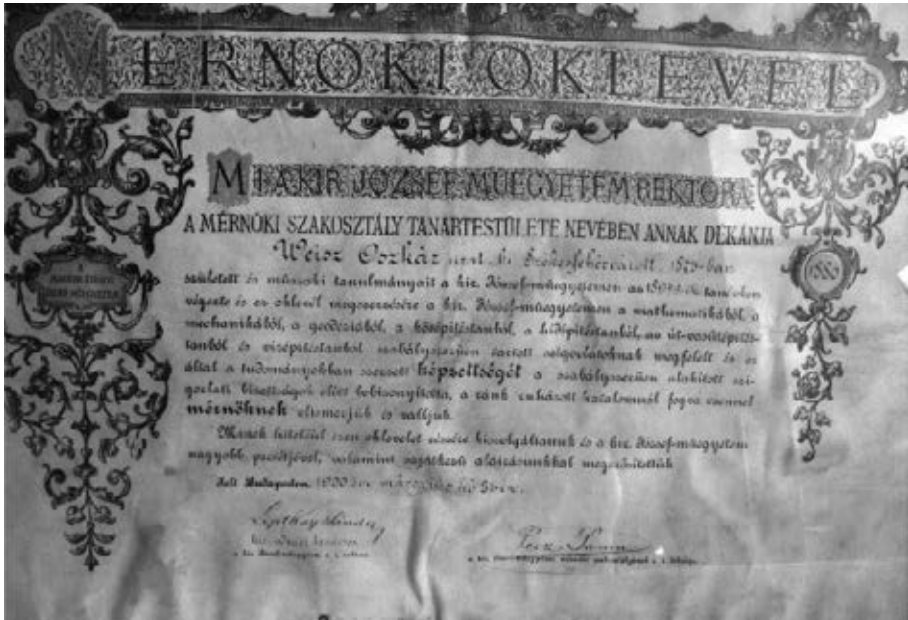 MÉRNÖKI OKLEVÉL
MI A KIR JÓZSEF-MŰEGYETEM REKTORA
A MÉRNÖKI SZAKOSZTÁLY TANÁRTESTÜLETE NEVÉBEN ANNAK DÉKÁNJA
Weisz Oszkár Székesfehérvárott
született és műszaki tanulmányait a kir. József-műegyetemen az tanévben
végezte és ez oklevél megszerzésére a kir. József-műegyetemen a mathematikából, a
mechanikából, a geodéziából, a középítéstanból, a hídépítéstanból, az út-vasútépítés-
tanból és vízépítéstanból szabályszerűen tartott szigorlatoknak megfelelt és ez
által a tudományokban szerzett képzettségét a szabályszerűen alakított szi-
gorlati bizottságok előtt bebizonyította, a ránk ruházott hatalomnál fogva ezennel
mérnöknek elismerjük és valljuk.
Minek hiteléül ezen oklevelet részére kiszolgáltattuk és a kir. József-műegyetem
nagyobb pecsétjével, valamint sajátkezű aláirásunkkal megerősítettük.
Kelt Budapesten, 1900